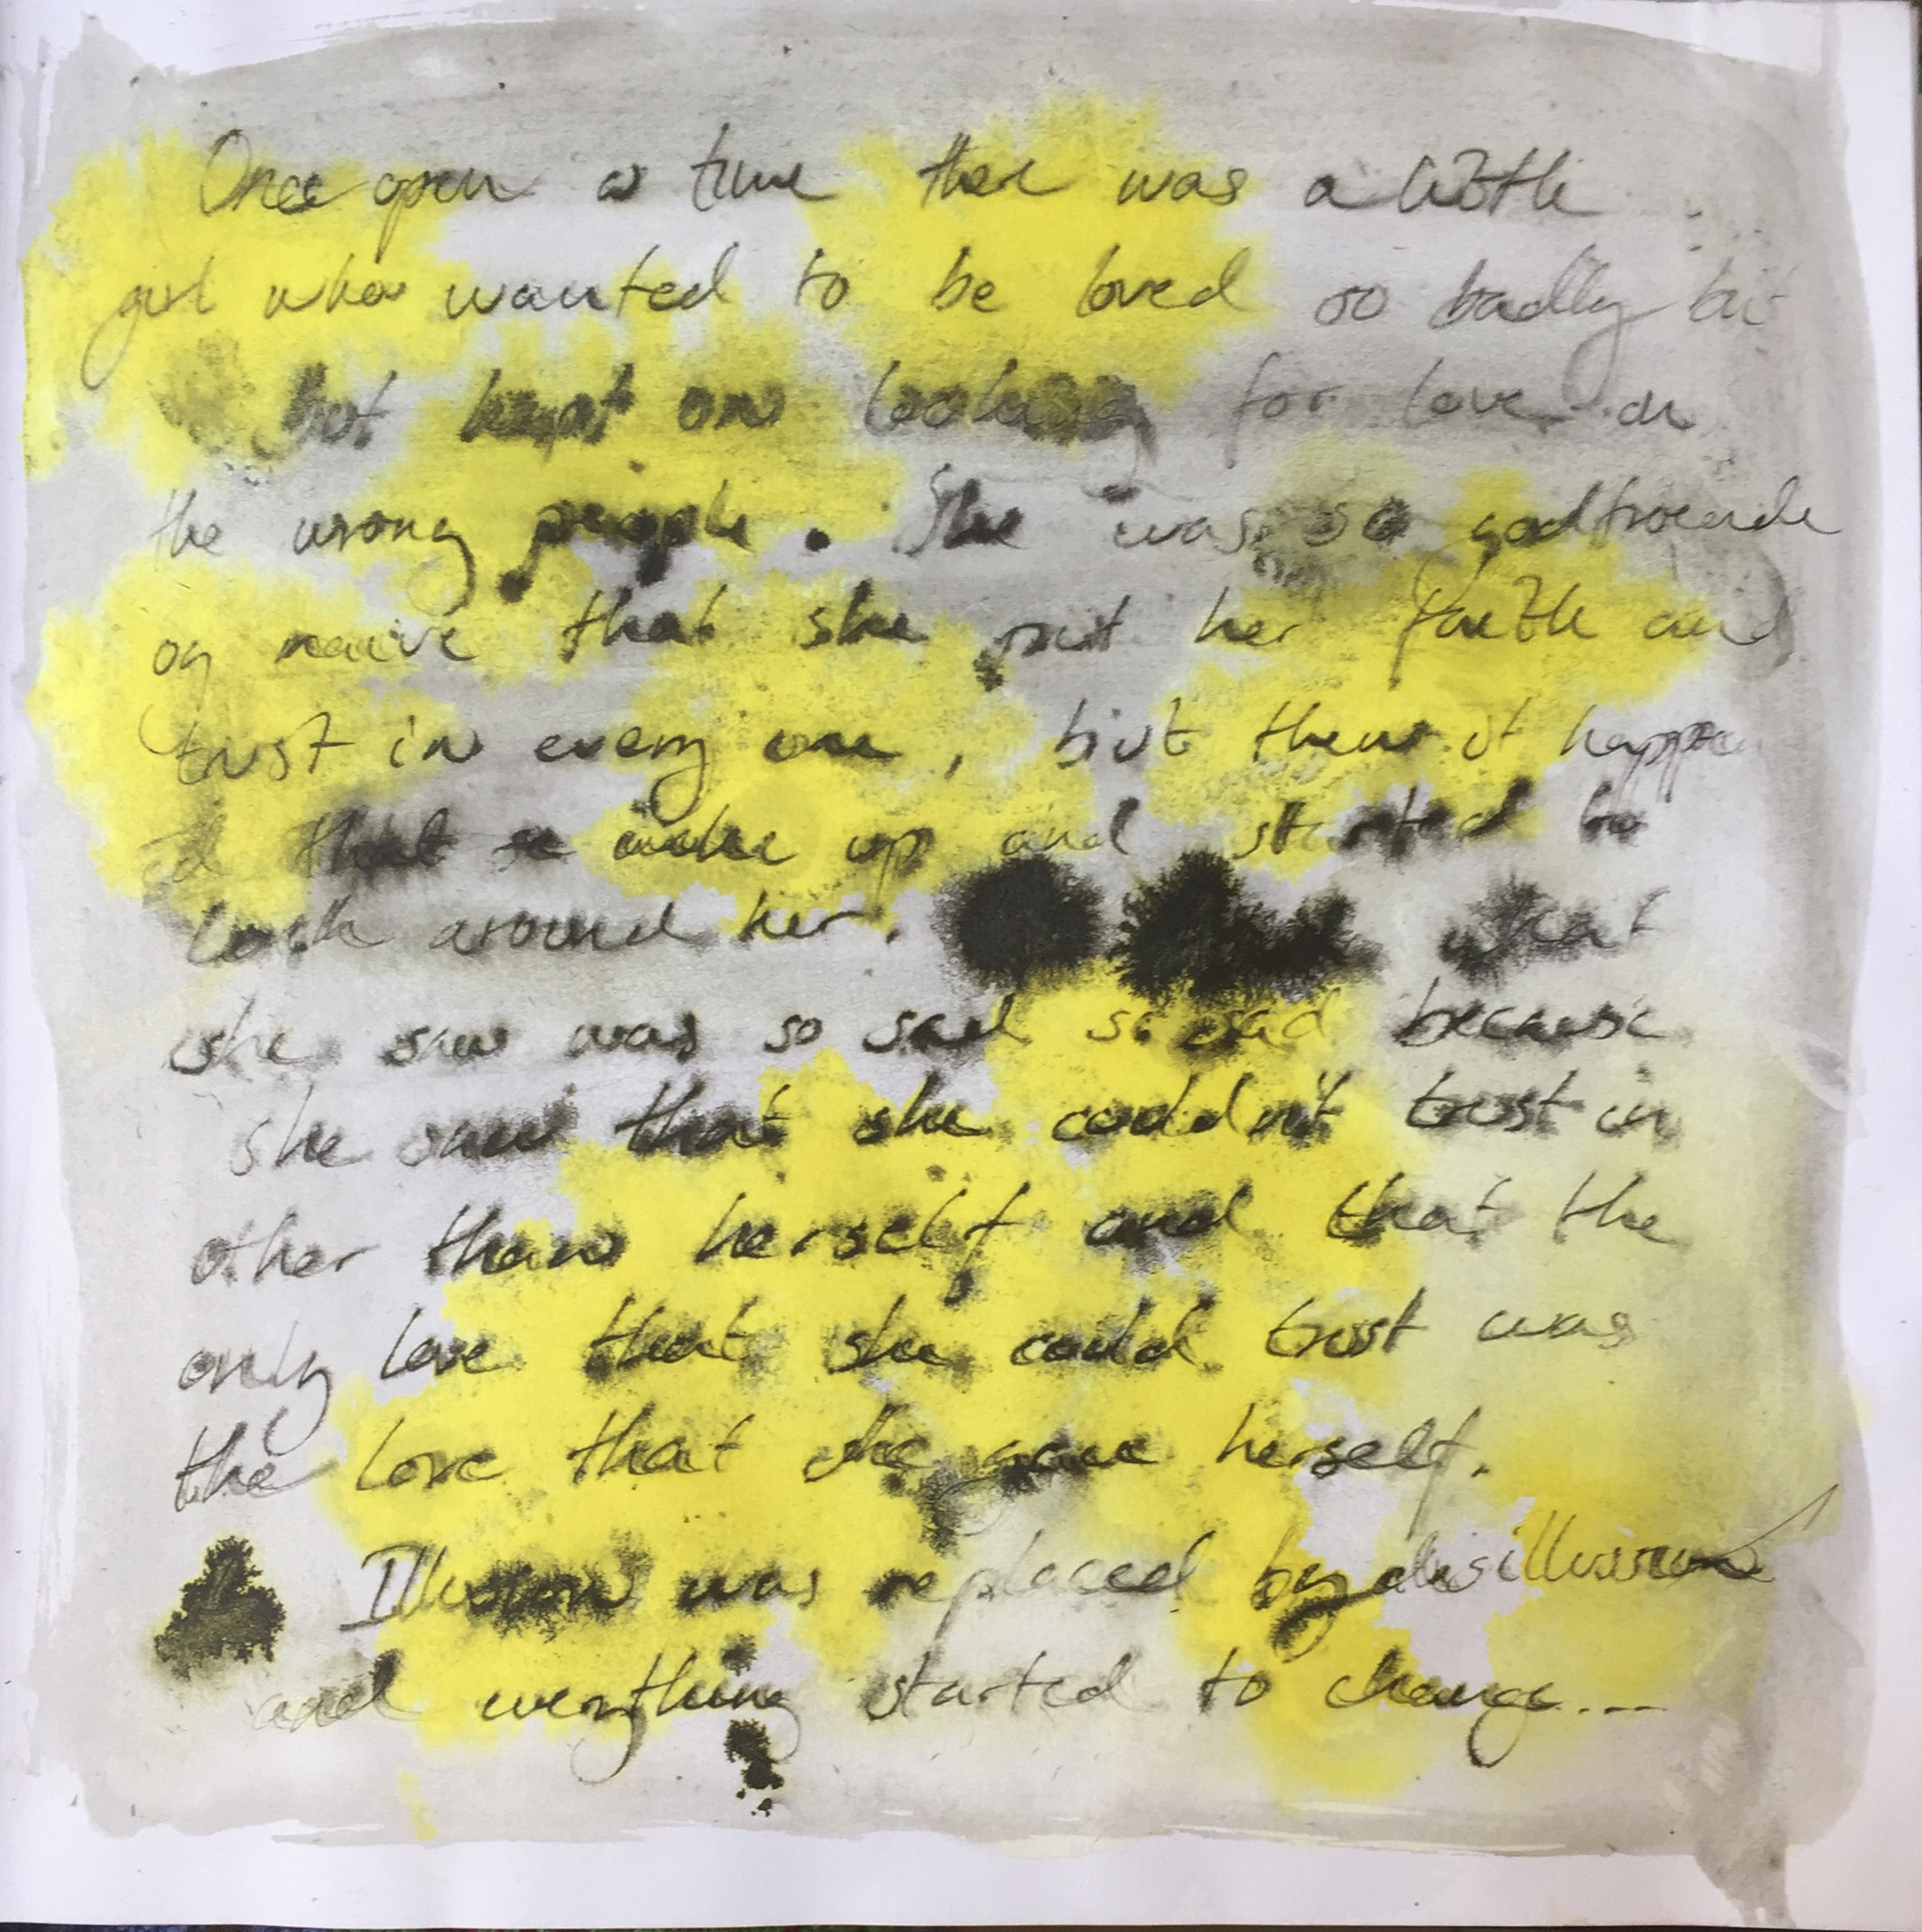 Once open a time ther was a little
girl who wanted to be loved so badly but
but kept on looking for love in
the wrong people. She was so godtroende
og naive that she put her faith and
trust in every one, but then it happen
ed that se wake up and started to
look around her. what
she saw was so sad so sad because
she saw that she couldn't trust in
other than herself and that the
only love that she could trust was
the love that she gave herself.
Illusion was replaced by disillusion
and everything started to change....